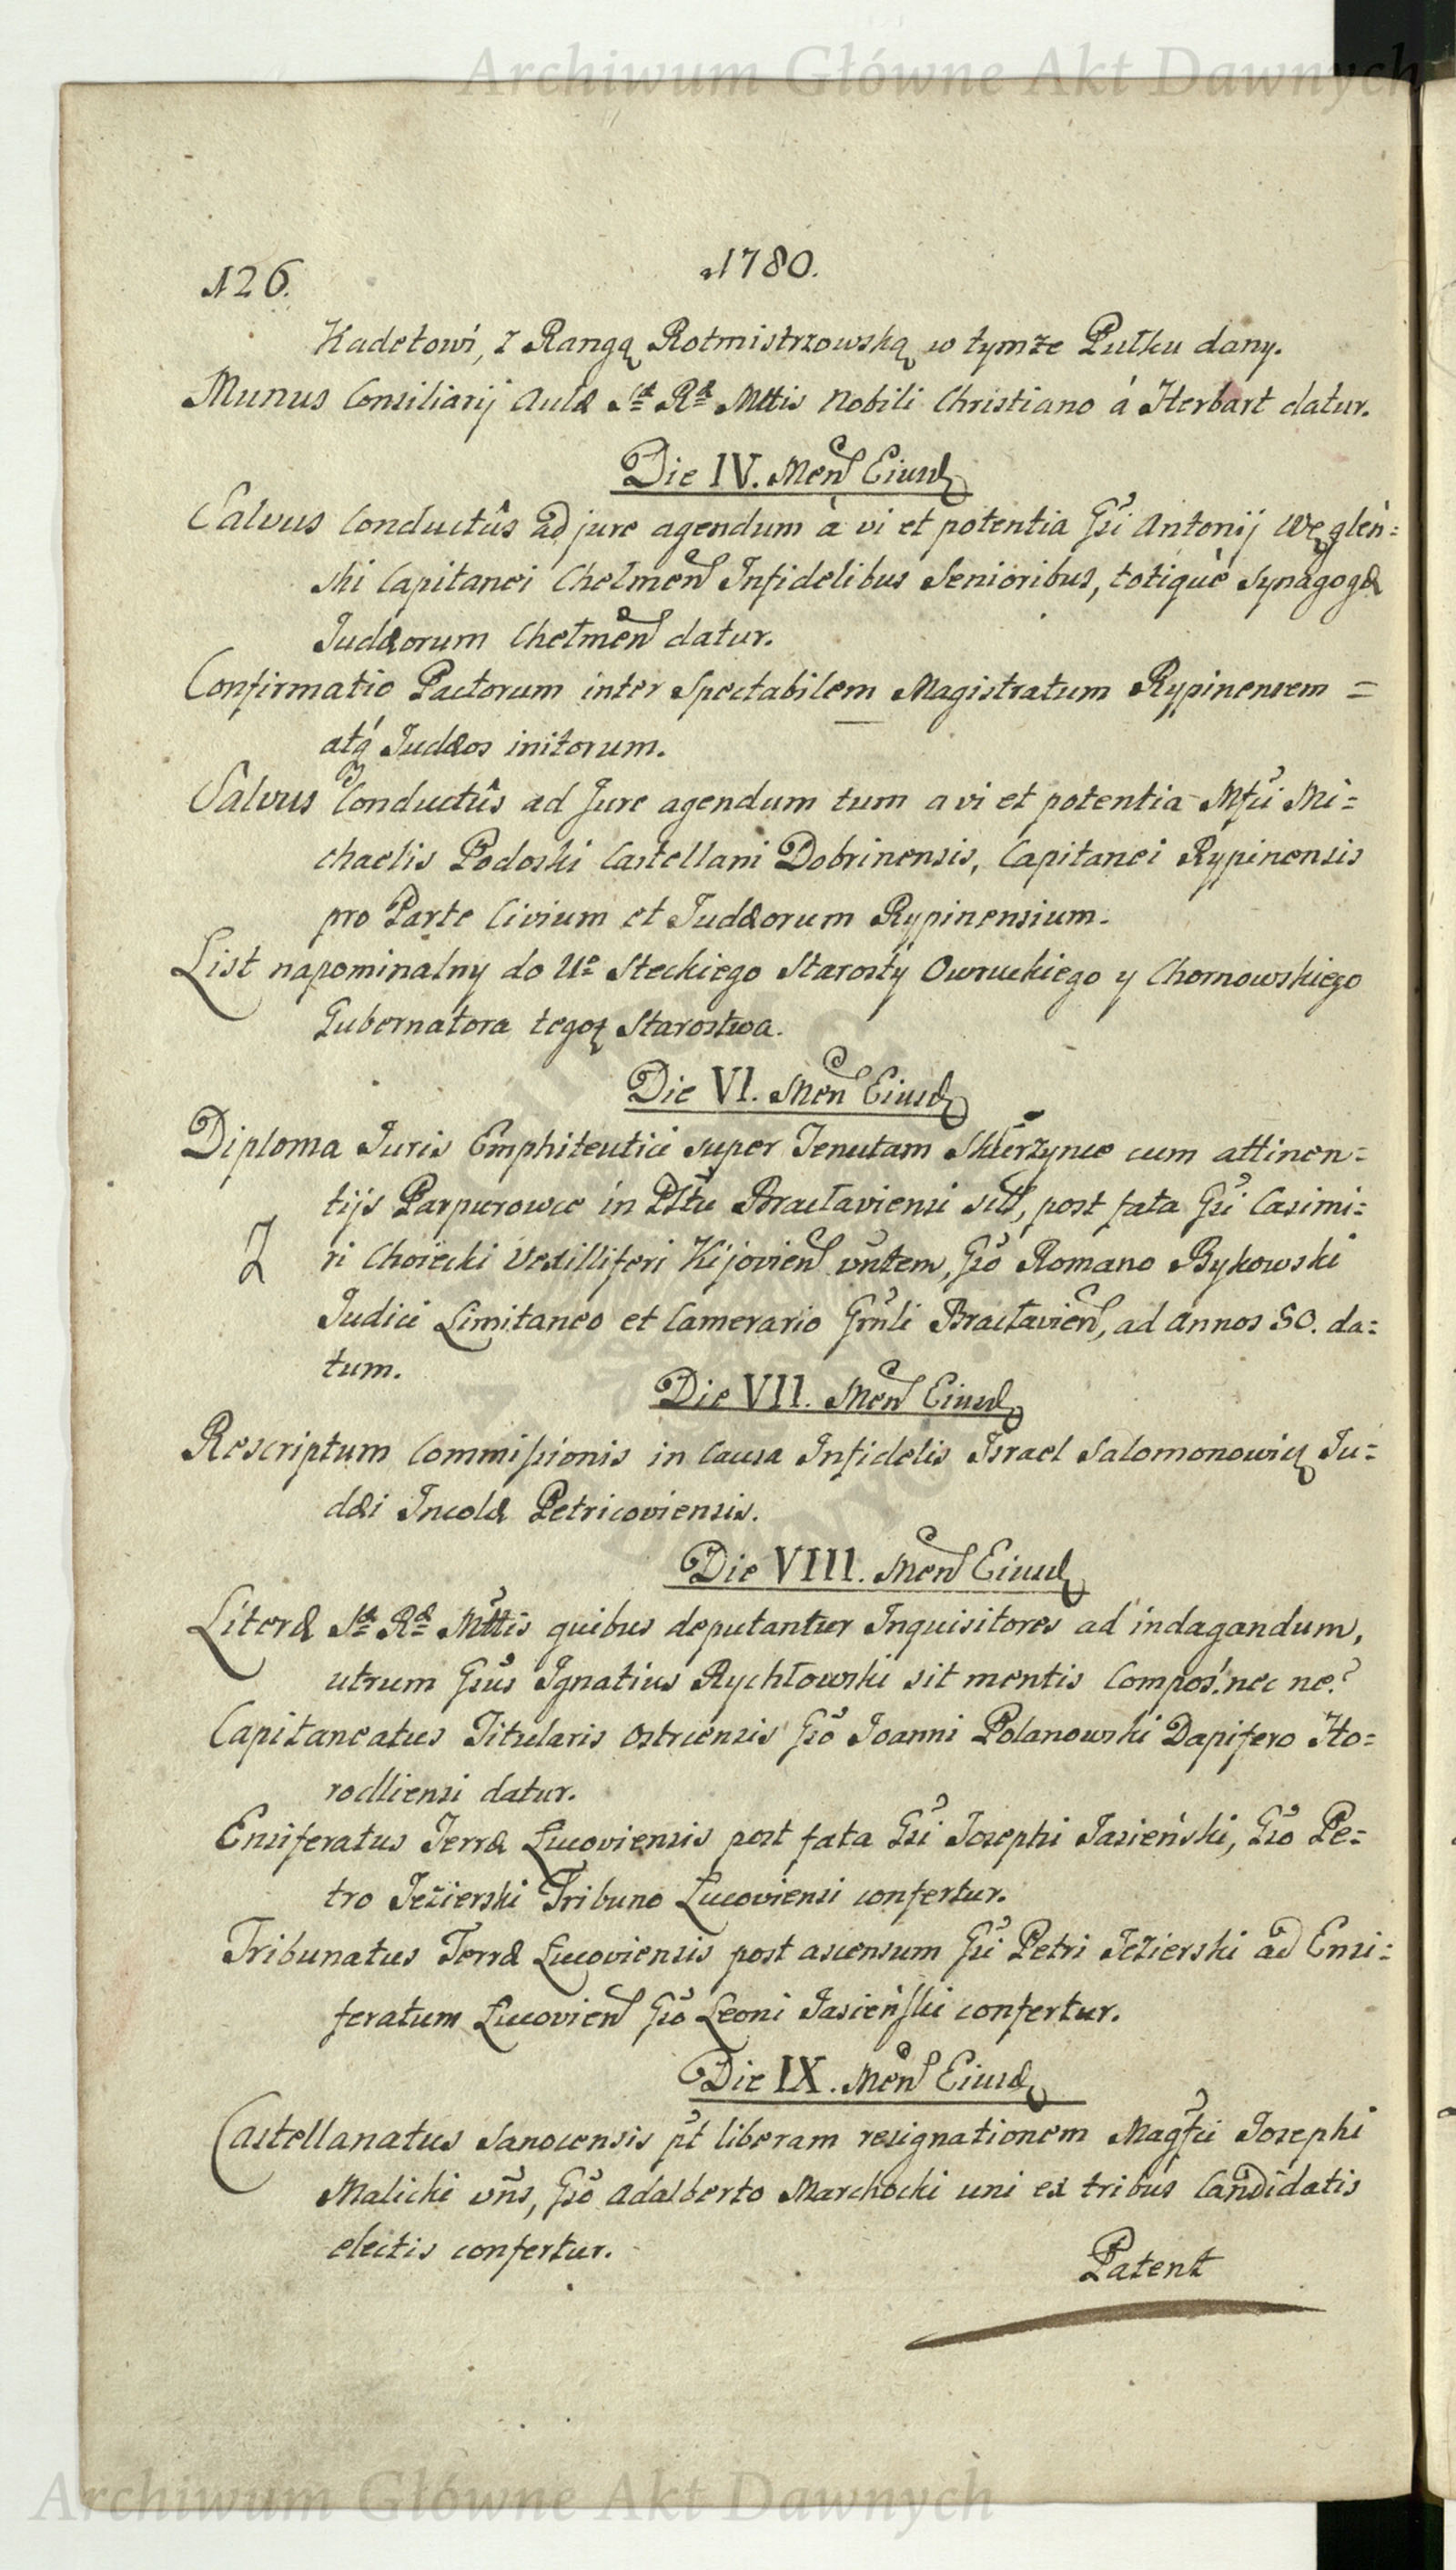 Archiwum Główne Akt Dawnych
126.
1780.
Kadetowi, z Rangą Rotmistrzowską w tymże Pułku dany.
Munus Consiliarij Aulæ Sæ Ræ Mttis Nobili Christiano á Herbart datur.
Die IV. Men Eiusd
Salvus Conductûs ad jure agendum à vi et potentia Gsi Antonij Węgleń=
ski Capitanei Chelmen Infidelibus Senioribus, totiquè Synagogæ
Judæorum Chełmen datur.
Confirmatio Pactorum inter Spectabilem Magistratum Rypinensem =
atq́ Judæos initorum.
Salvus Conductûs ad Jure agendum tum a vi et potentia Mfci Mi=
chaelis Podoski Castellani Dobrinensis, Capitanei Rypinensis
pro Parte Civium et Judæorum Rypinensium.
List napominalny do Ue Steckiego Starosty Owruckiego y Chornowskiego
Gubernatora tegoż Starostwa.
Die VI. Men Eiusd
Diploma Juris Emphiteutici super Tenutam Skierzynce cum attinen=
tijs Parpurowce in Psttu Bracławiensi sitt, post fata Gsi Casimi=
ri Choiecki Vexilliferi Kijovien vntem, Gso Romano Bykowski
Judici Limitaneo et Camerario Grnli Bracłavien, ad Annos 50. da=
tum.
Die VII. Men Eiusd
Rescriptum Commissionis in Causa Infidelis Israel Salomonowicz Ju=
dæi Incolæ Petricoviensis.
Die VIII. Men Eiusd
Literæ Sæ Ræ Mttis quibus deputantur Inquisitores ad indagandum,
utrum Gsus Ignatius Rychłowski sit mentis Compos! nec ne?
Capitaneatus Titularis Ostrcensis Gso Joanni Polanowski Dapifero Ho=
rodliensi datur.
Ensiferatus Terræ Lucoviensis post fata Gsi Josephi Jasieński, Gso Pe=
tro Jezierski Tribuno Lucoviensi confertur.
Tribunatus Terræ Lucoviensis post ascensum Gsi Petri Jezierski ad Ensi=
feratum Lucovien Gso Leoni Jasieński confertur.
Die IX. Men Eiusd
Castellanatus Sanocensis pt liberam resignationem Magfci Josephi
Malicki vns, Gso Adalberto Marchocki uni ex tribus Candidatis
electis confertur.
Patent
Archiwum Główne Akt Dawnych